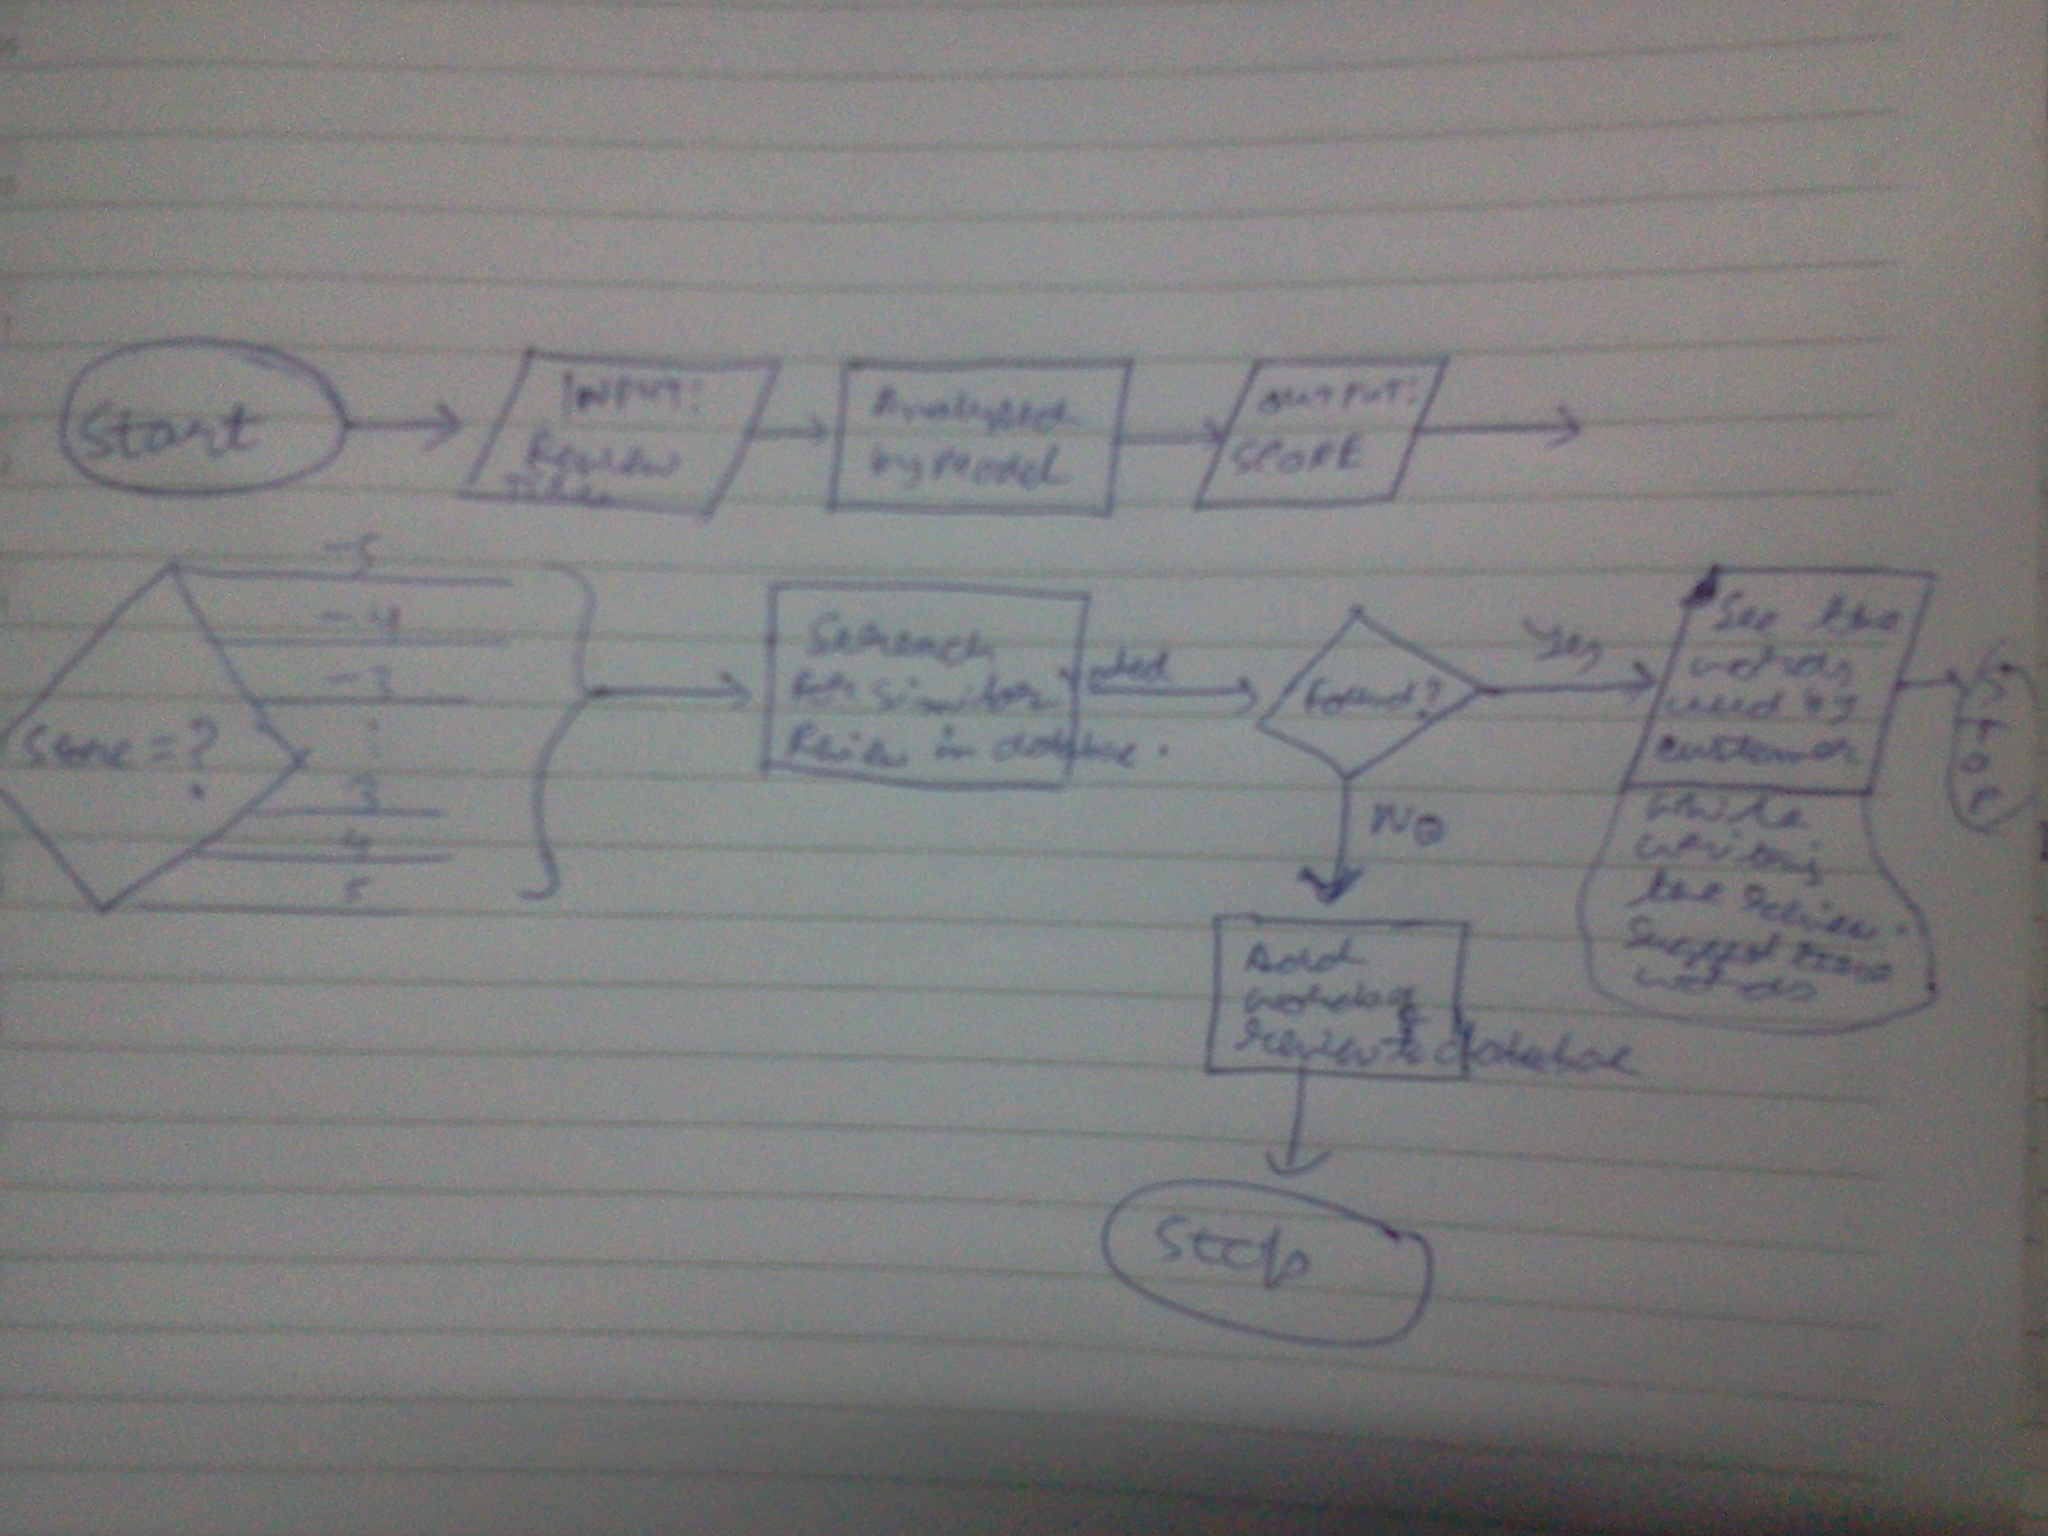 Start
INPUT:
Review
Analysed
by Model
OUTPUT:
SCORE
Score = ?
-5
-4
-3
3
4
5
Search
for similar
Review in database.
found?
Yes
No
See the
words
used by
customer
while
writing
the review.
Suggest those
words
STOP
Add
review to database
Stop